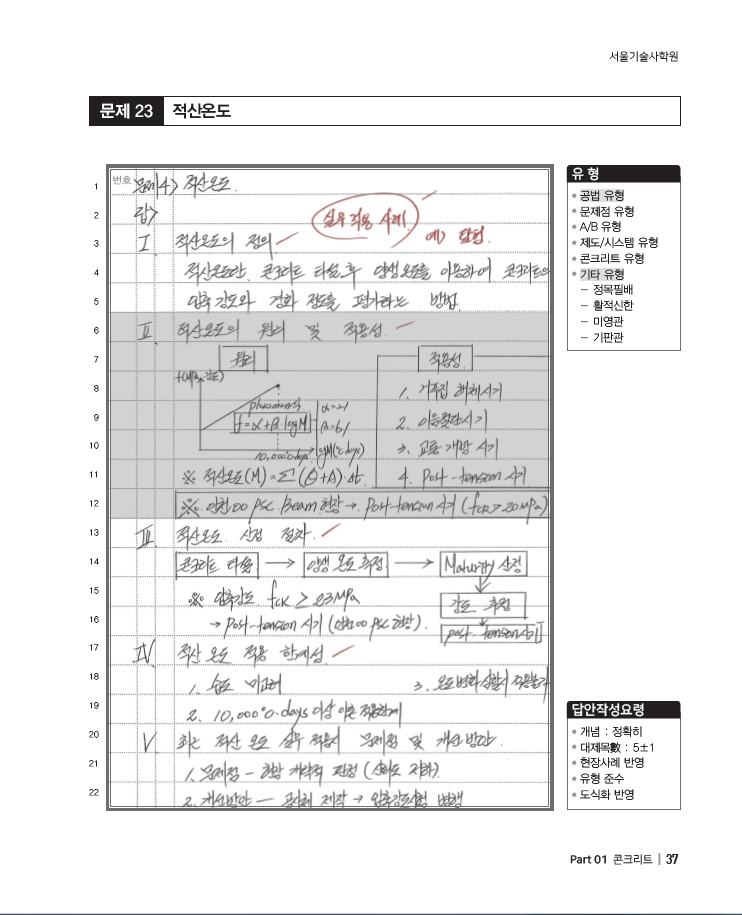 서울기술사학원
문제 23 적산온도
번호 문제 4) 적산온도.
1
답>
2
실무 적용 사례.
예) 답험.
I. 적산온도의 정의
3
적산온도란, 콘크리트 타설후 양생온도를 이용하여 콘크리트의
4
압축강도와 경화 정도를 평가하는 방법.
5
II. 적산온도의 원리 및 적용성.
6
원리 적용성.
7
1. 거푸집 해체시기
8
2. 이음절단시기
f = α + β log M
α = 21
β = 61
9
3. 교통개방 시기
10,000°0.days
10
※ 적산온도(M) = Σ(θ+A)·Δt. 4. Post-tension 시기
11
※ 인천00 PSC. Beam 현장 → Post-tension 시기 (fck > 20MPa)
12
III. 적산온도. 산정 절차.
13
콘크리트 타설 → 양생 온도 측정 → Maturity 산정
14
※ 압축강도 fck ≥ 23MPa 강도 추정
15
→ Post-tension 시기 (인천00 PSC 현장). post-tension시기
16
IV. 적산온도 적용 한계성.
17
1. 습도 미고려 3. 온도변화 심할시 적용불가
18
2. 10,000°0.days 이상 이론 적용한계
19
V. 최근 적산온도 실무 적용시 문제점 및 개선방안.
20
1. 문제점 - 현장 개략적 판정 (신뢰도 저하).
21
2. 개선방안 - 공시체 제작 → 압축강도시험 병행
22
유 형
• 공법 유형
• 문제점 유형
• A/B 유형
• 제도/시스템 유형
• 콘크리트 유형
• 기타 유형
- 정목필배
- 활적신한
- 미영관
- 기판관
답안작성요령
• 개념 : 정확히
• 대제목數 : 5±1
• 현장사례 반영
• 유형 준수
• 도식화 반영
Part 01 콘크리트 | 37